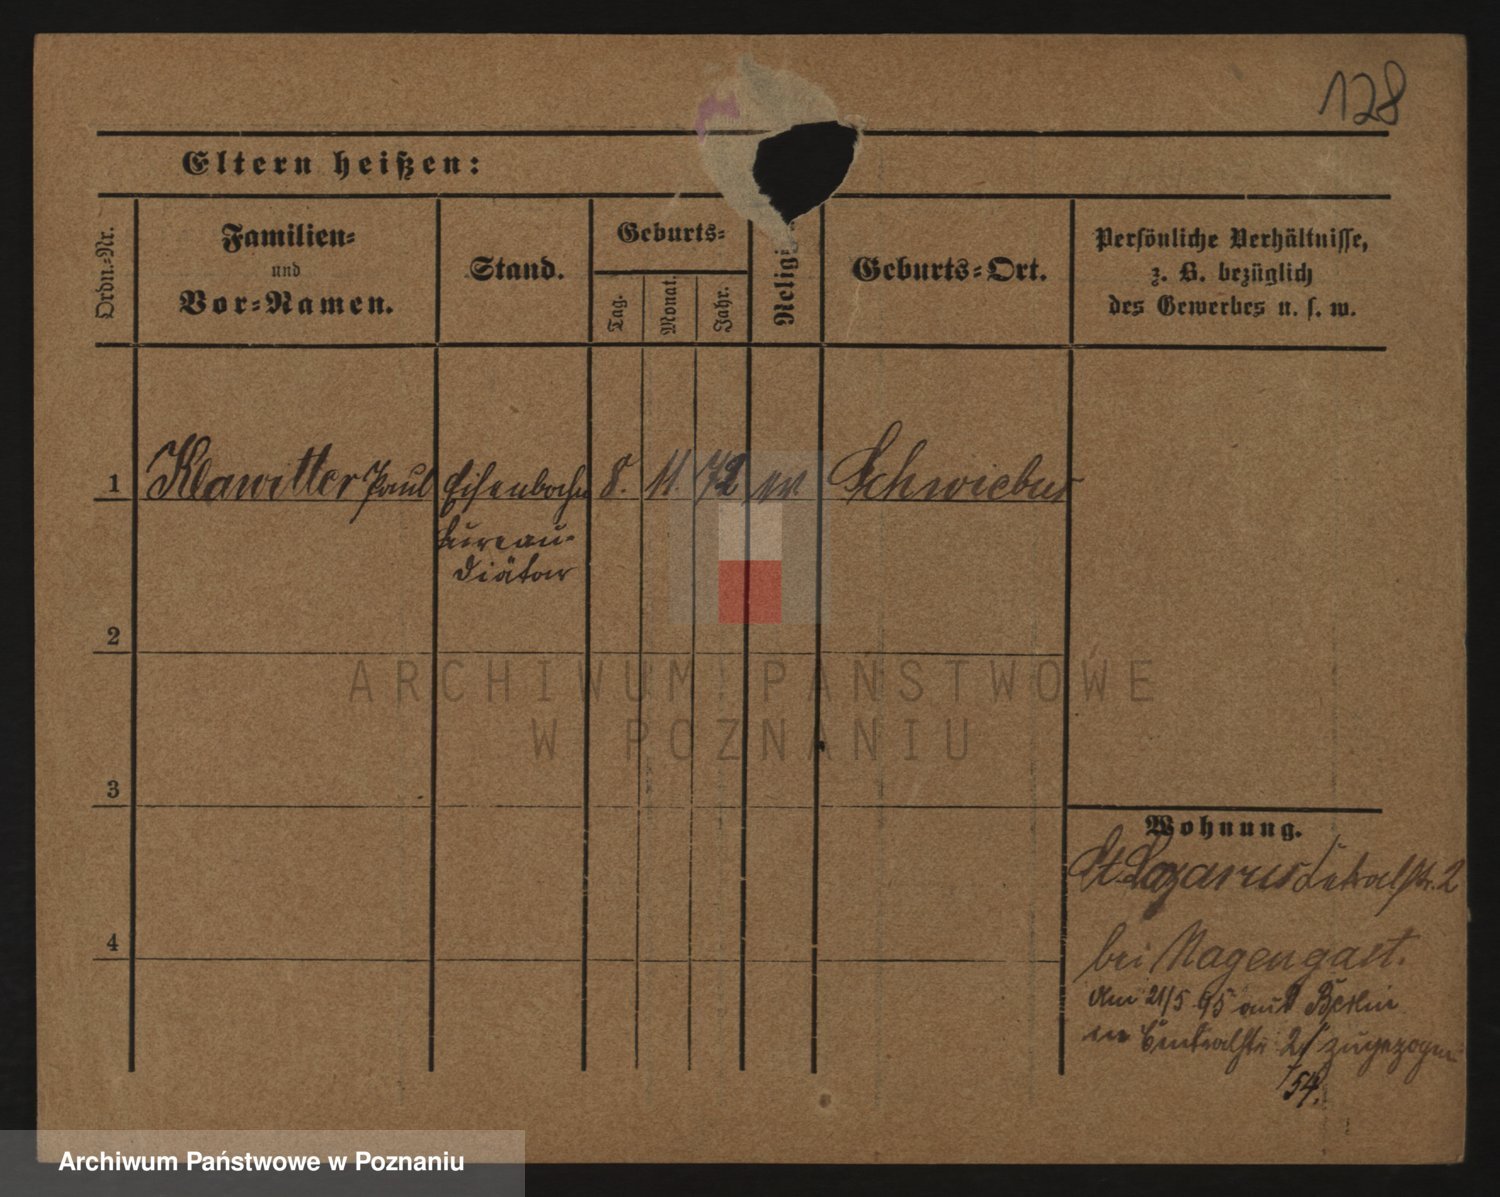 128
Eltern heißen:
Ordn.=Nr.
Familien=
und
Vor=Namen.
Stand.
Geburts=
Tag.
Monat.
Jahr.
Religi
Geburts=Ort.
Persönliche Verhältnisse,
z. B. bezüglich
des Gewerbes u. s. w.
1 Klawitter Paul Eisenbahn 8. 11. 72 ev Schwiebus
bureau=
diätar
2
3
4
Wohnung.
St. Lazarus 2
bei Nagengast.
Am 21/5 95 aus Berlin
in Centralstr 2 zugezogen
54.
ARCHIWUM PAŃSTWOWE
W POZNANIU
Archiwum Państwowe w Poznaniu